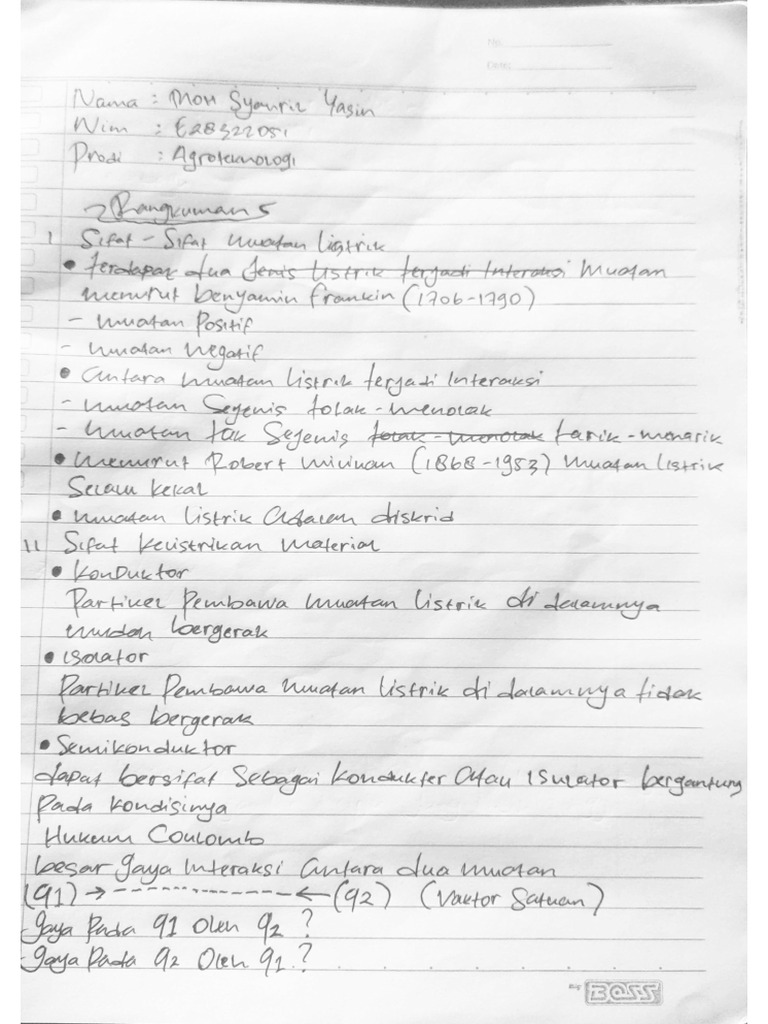 Nama : Moh Syahril Yasin
Nim : E28322051
Prodi : Agroteknologi
→ Rangkuman 5
I Sifat - Sifat muatan listrik
• terdapat dua jenis listrik terjadi interaksi Muatan
menurut benyamin frankin (1706-1790)
- muatan Positif
- muatan negatif
• antara muatan listrik terjadi interaksi
- muatan Sejenis tolak-menolak
- muatan tak Sejenis tolak-menolak tarik-menarik
• menurut Robert milinan (1868-1953) muatan listrik
Selalu kekal
• muatan listrik adalah diskrid
II Sifat kelistrikan material
• konDuktor
Partikel Pembawa muatan listrik di dalamnya
mudah bergerak
• isolator
Partikel Pembawa muatan listrik di dalamnya tidak
bebas bergerak
• Semikonduktor
dapat bersifat Sebagai kondukter atau isulator bergantung
Pada kondisinya
Hukum Coulomb
besar gaya interaksi antara dua muatan
(q1) → ------------ ← (q2) (Vaktor Satuan)
- gaya Pada q1 Oleh q2 ?
- gaya Pada q2 Oleh q1 ?
BOSS